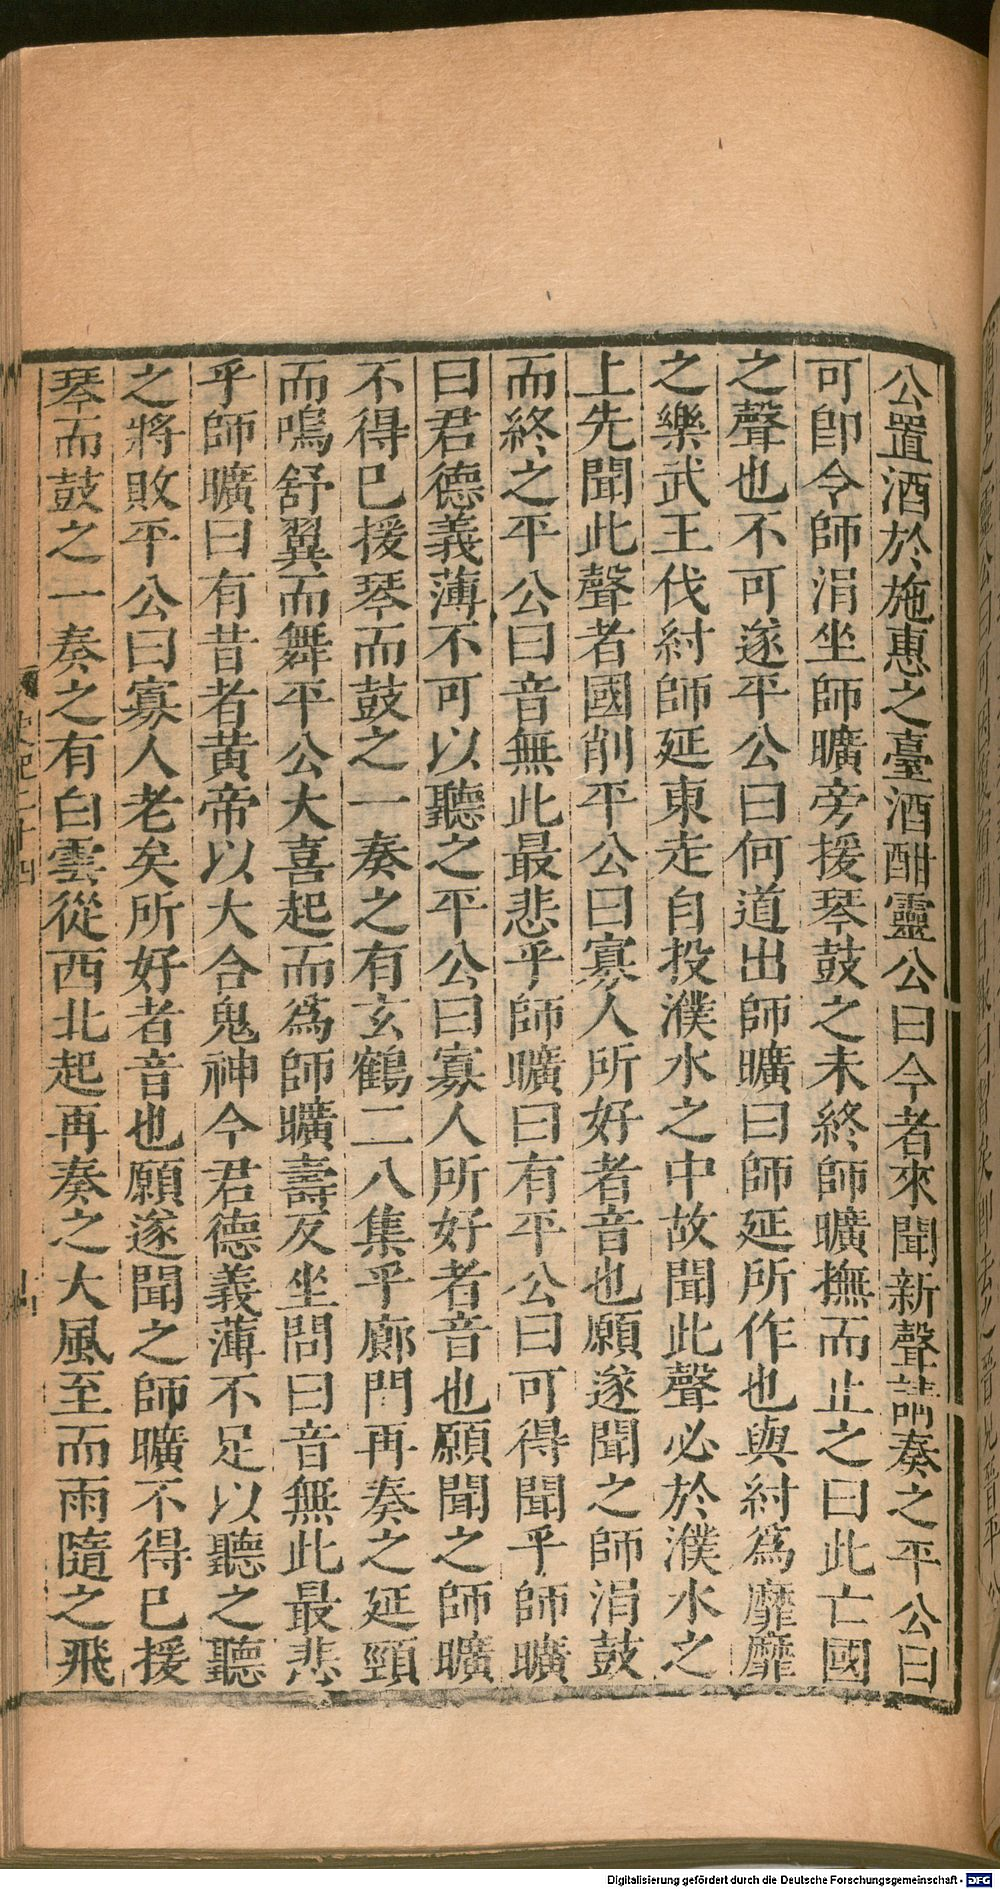 公置酒於施惠之臺酒酣靈公曰今者來聞新聲請奏之平公曰
可卽令師涓坐師曠旁援琴鼓之未終師曠撫而止之曰此亡國
之聲也不可遂平公曰何道出師曠曰師延所作也與紂爲靡靡
之樂武王伐紂師延東走自投濮水之中故聞此聲必於濮水之
上先聞此聲者國削平公曰寡人所好者音也願遂聞之師涓鼓
而終之平公曰音無此最悲乎師曠曰有平公曰可得聞乎師曠
曰君德義薄不可以聽之平公曰寡人所好者音也願聞之師曠
不得已援琴而鼓之一奏之有玄鶴二八集乎廊門再奏之延頸
而鳴舒翼而舞平公大喜起而爲師曠壽反坐問曰音無此最悲
乎師曠曰有昔者黄帝以大合鬼神今君德義薄不足以聽之聽
之將敗平公曰寡人老矣所好者音也願遂聞之師曠不得已援
琴而鼓之一奏之有白雲從西北起再奏之大風至而雨隨之飛
史記二十四
Digitalisierung gefördert durch die Deutsche Forschungsgemeinschaft - DFG